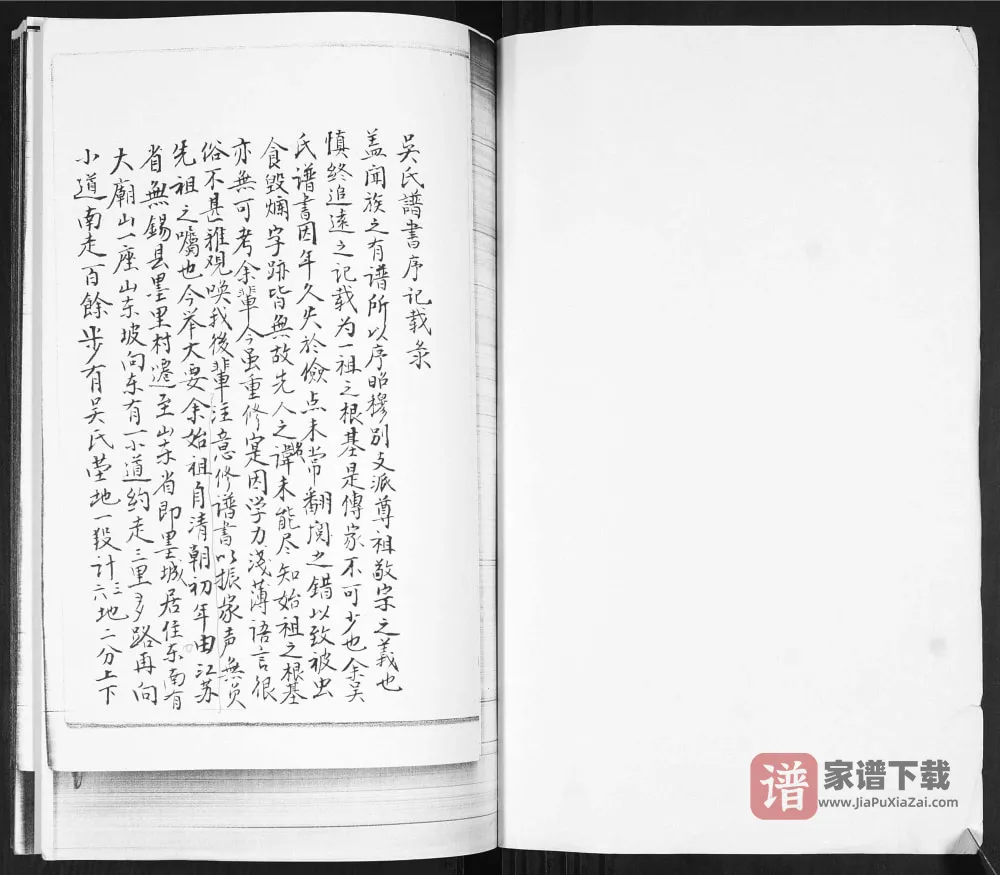 吴氏譜書序记载录
盖闻族之有谱所以序昭穆别支派尊祖敬宗之義也
慎终追遠之记载为一祖之根基是傳家不可少也余吴
氏谱書因年久失於儉点未常翻阅之错以致被虫
食毁烂字跡皆無故先人之諱未能尽知始祖之根基
亦無可考余輩今虽重修寔因学力淺薄语言很
俗不甚雅观唤我後輩注意修谱書以振家声無负
先祖之嘱也今举大要余始祖自清朝初年由江苏
省無锡县墨里村遷至山东省即墨城居住东南有
大廟山一座山东坡向东有一小道约走三里多路再向
小道南走百餘步有吴氏茔地一段计三六地二分上下
谱 家谱下载
www.JiaPuXiaZai.com